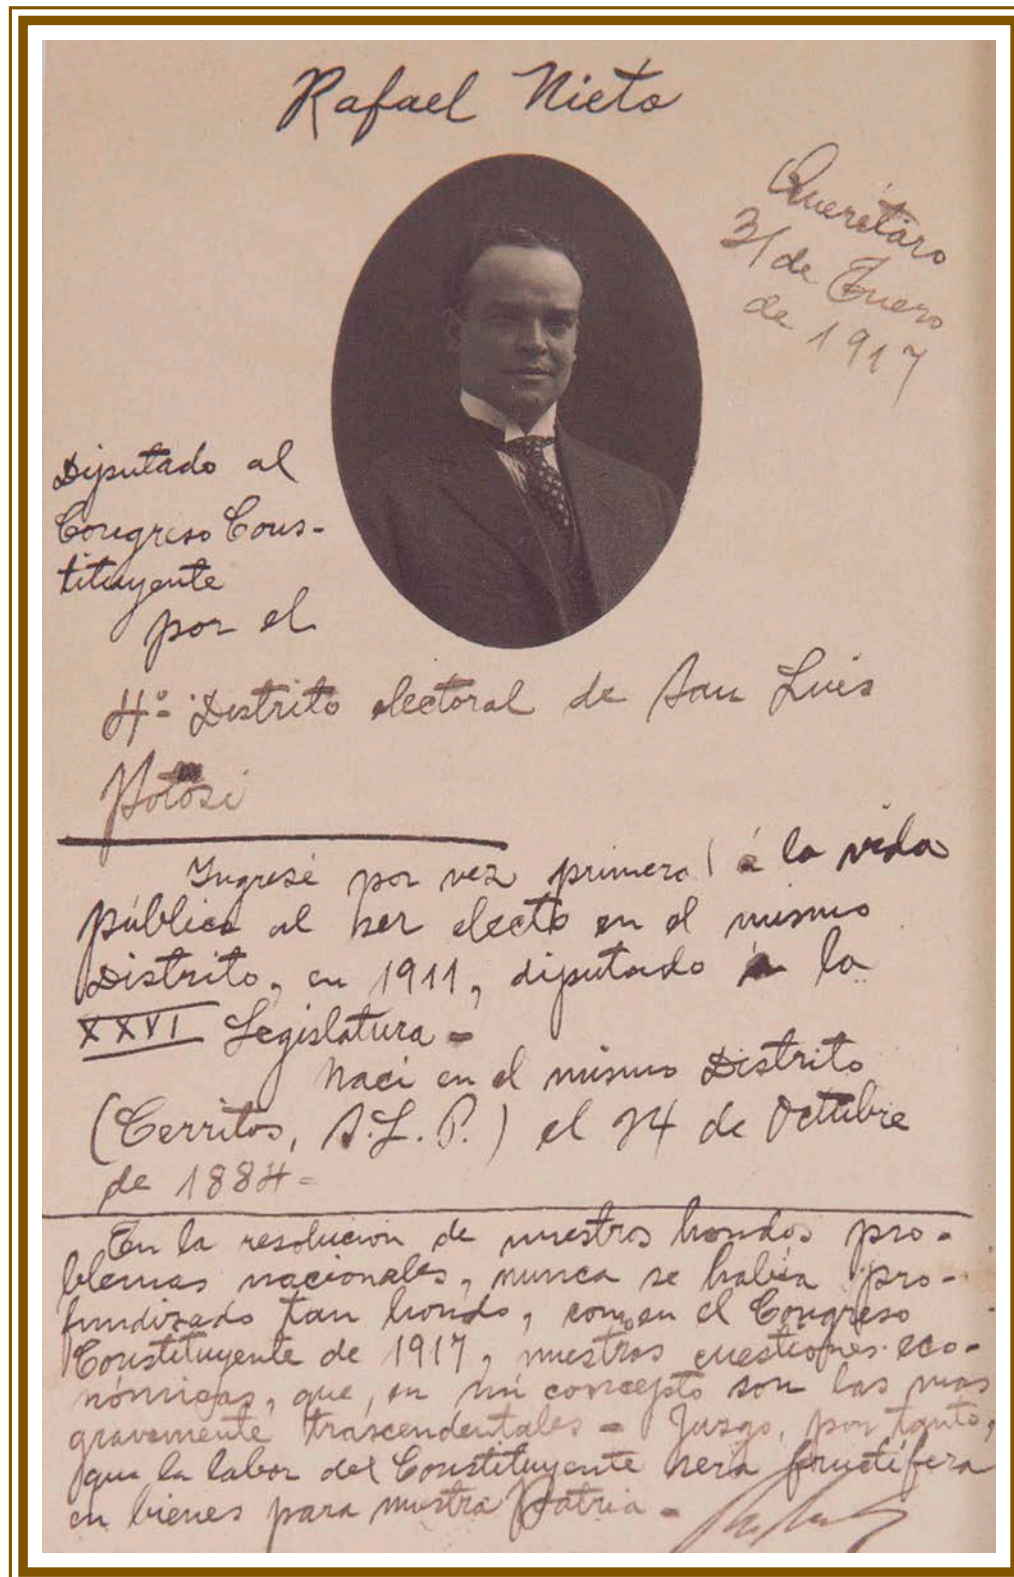 Rafael Nieto
Querétaro
31 de Enero
de 1917
Diputado al
Congreso Cons-
tituyente
por el
4º Distrito electoral de San Luis
Potosí
Ingresé por vez primera á la vida
pública al ser electo en el mismo
Distrito, en 1911, diputado á la
XXVI Legislatura -
Nací en el mismo Distrito
(Cerritos, S.L.P.) el 24 de Octubre
de 1884 -
En la resolucion de nuestros hondos pro-
blemas nacionales, nunca se había pro-
fundizado tan hondo, como en el Congreso
Constituyente de 1917, nuestras cuestiones eco-
nómicas, que, en mi concepto son las mas
gravemente trascendentales - Juzgo, por tanto,
que la labor del Constituyente será fructífera
en bienes para nuestra Patria -